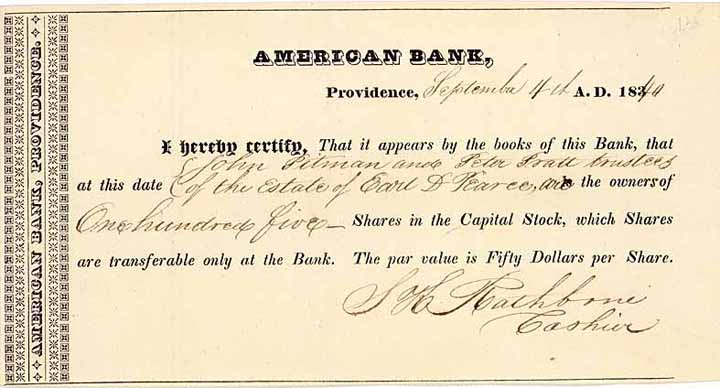 AMERICAN BANK,
Providence, September 4th A. D. 1840
I hereby certify, That it appears by the books of this Bank, that
John Pitman and Peter Pratt trustees
at this date of the Estate of Earl D Pearce, are the owners of
One hundred five Shares in the Capital Stock, which Shares
are transferable only at the Bank. The par value is Fifty Dollars per Share.
S H Rathbone
Cashier
AMERICAN BANK, PROVIDENCE.